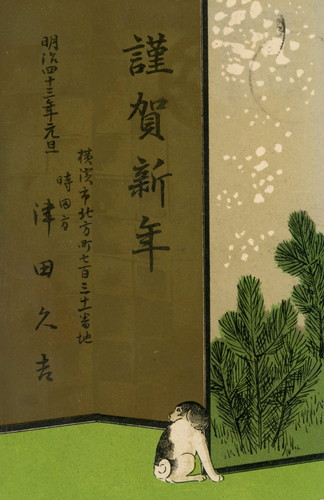 謹賀新年
横濱市北方町七百三十番地
時田方
津田久吉
明治四十三年元旦